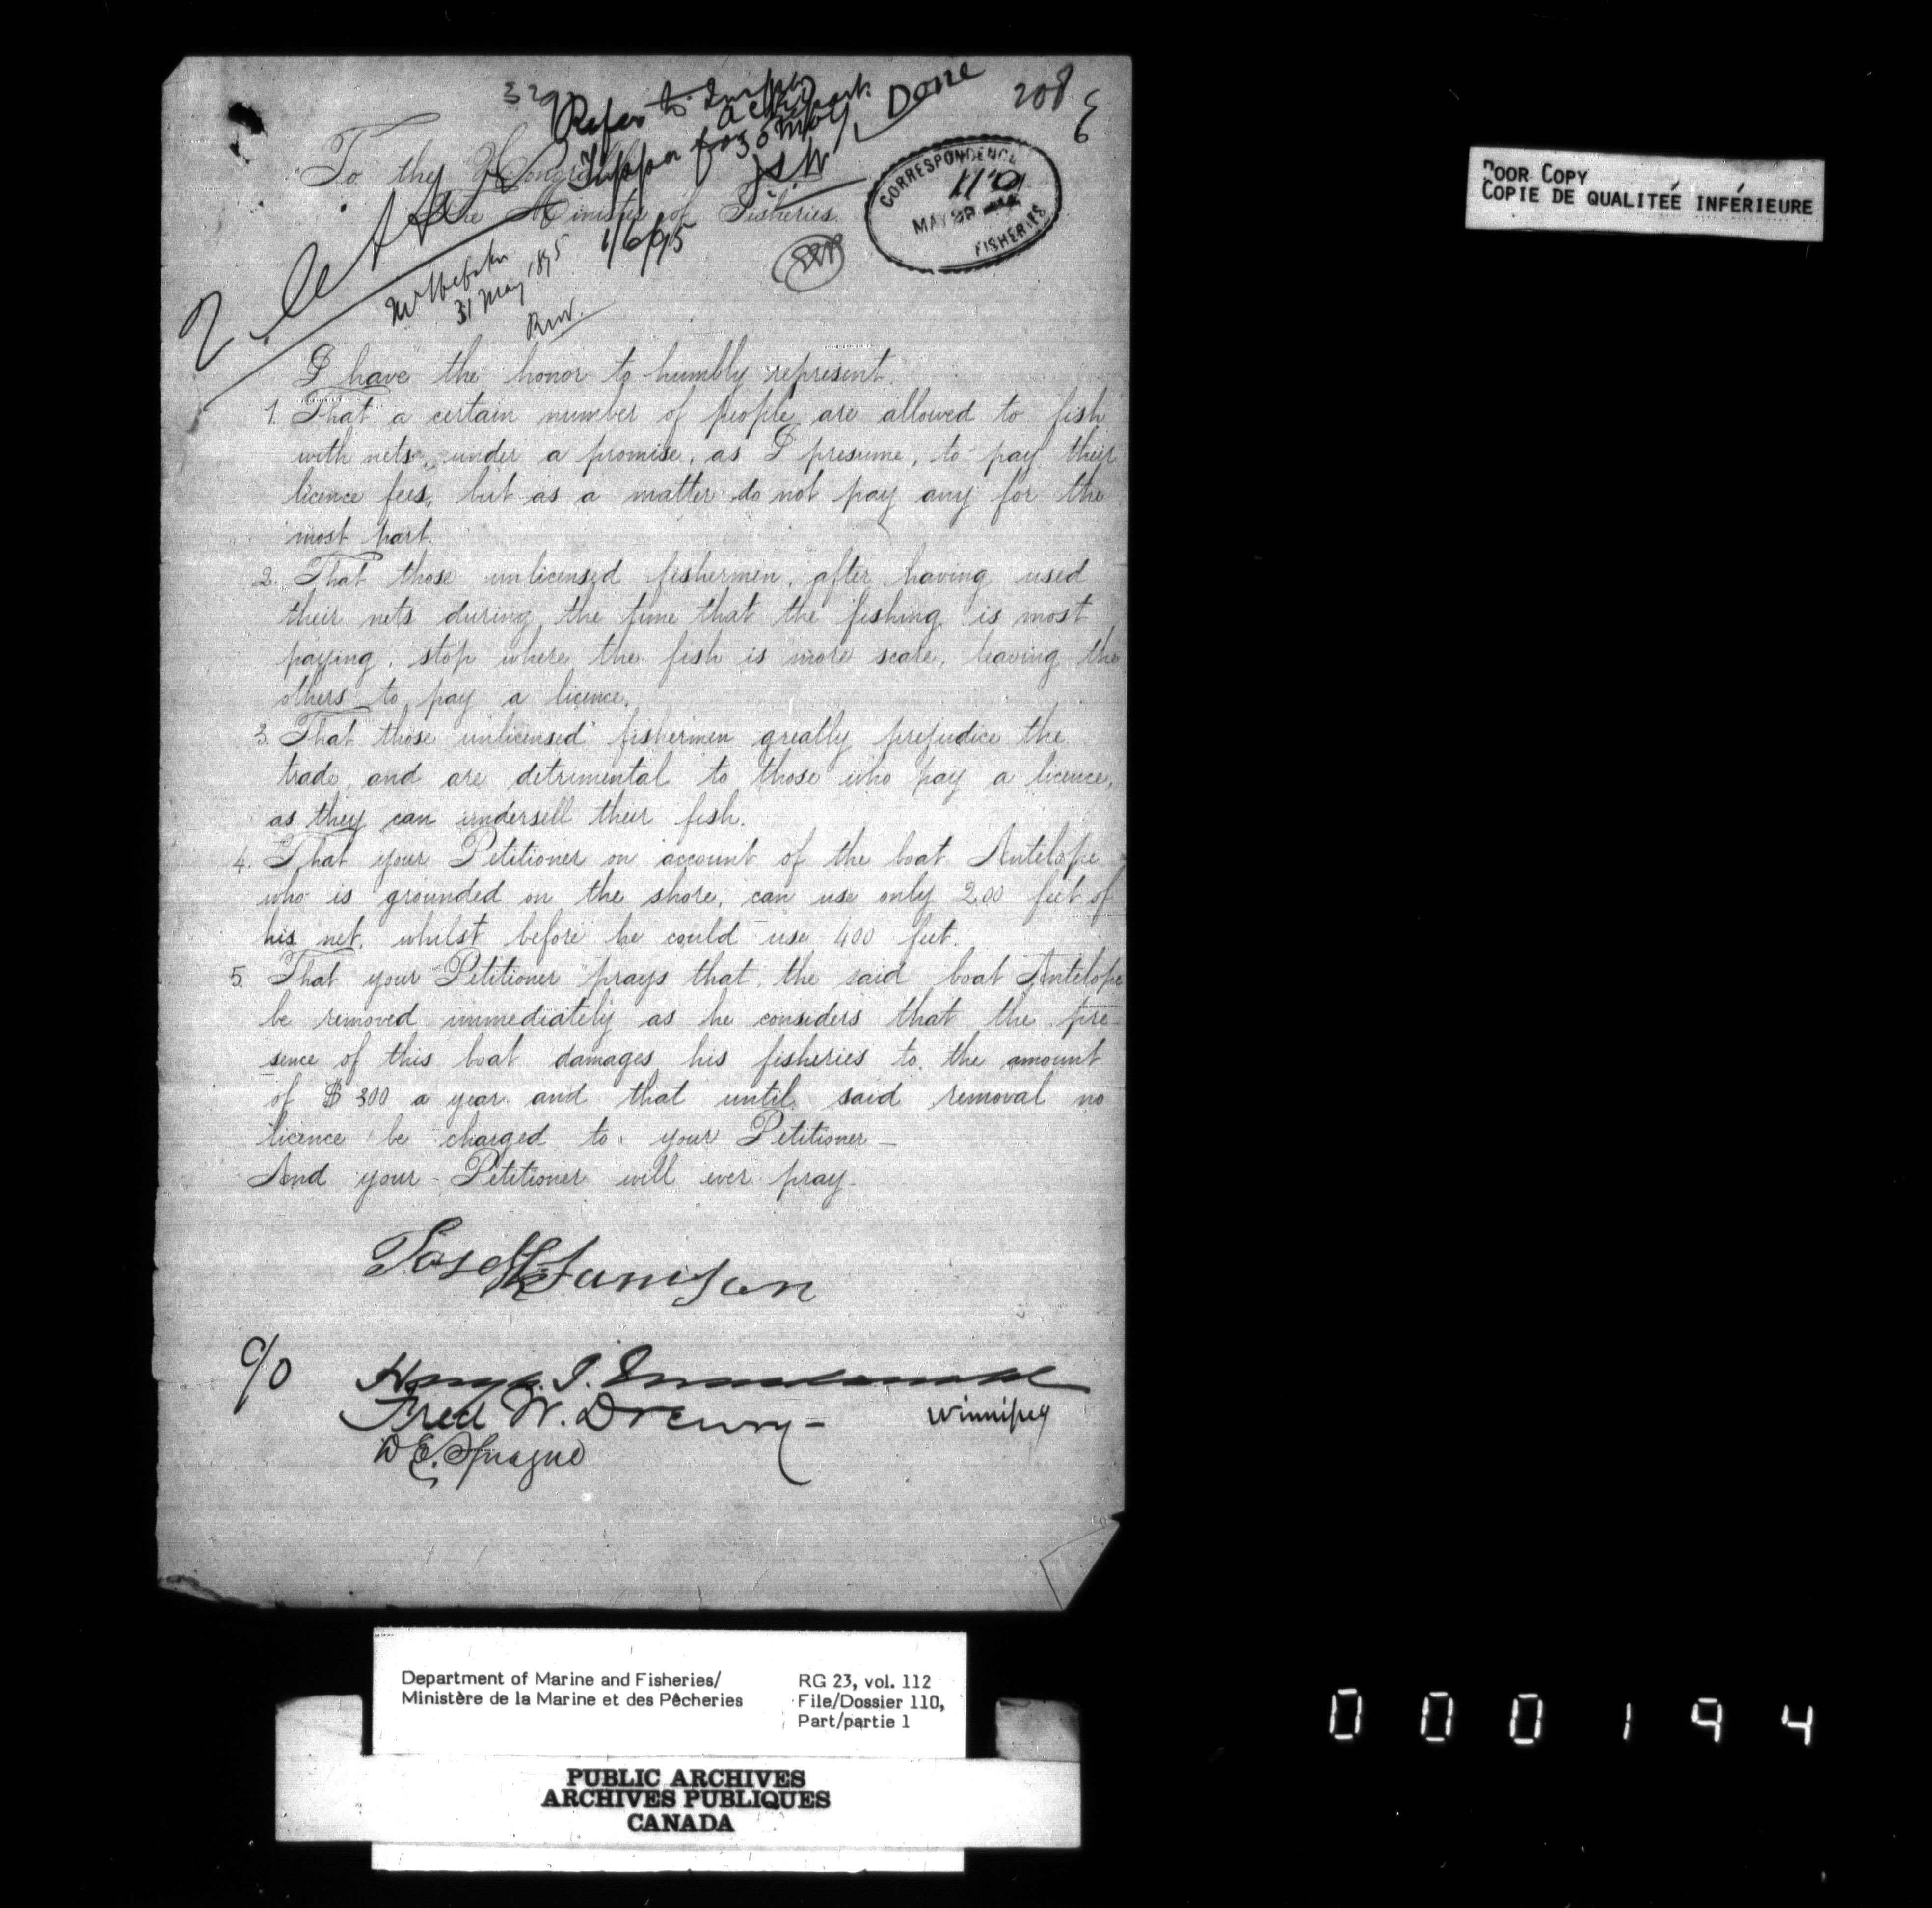 208
Refer to
for report
30 May
Done
To the Honorable
The Minister of Fisheries.
CORRESPONDENCE
110
MAY
FISHERIES
1/6/95
31 May 1895
RNV.
I have the honor to humbly represent.
1. That a certain number of people are allowed to fish
with nets, under a promise, as I presume, to pay their
licence fees, but as a matter do not pay any for the
most part.
2. That those unlicensed fishermen, after having used
their nets during the time that the fishing is most
paying, stop where the fish is more scare, leaving the
others to pay a licence.
3. That those unlicensed fishermen greatly prejudice the
trade, and are detrimental to those who pay a licence,
as they can undersell their fish.
4. That your Petitioner on account of the boat Antelope
who is grounded on the shore, can use only 200 feet of
his net, whilst before he could use 400 feet.
5. That your Petitioner prays that the said boat Antelope
be removed immediately as he considers that the pre-
sence of this boat damages his fisheries to the amount
of $300 a year and that until said removal no
licence be charged to your Petitioner —
And your Petitioner will ever pray
c/o
Fred W. Drewry -
Winnipeg
D E. Sprague
POOR COPY
COPIE DE QUALITEÉ INFÉRIEURE
Department of Marine and Fisheries/
Ministère de la Marine et des Pêcheries
RG 23, vol. 112
File/Dossier 110,
Part/partie 1
PUBLIC ARCHIVES
ARCHIVES PUBLIQUES
CANADA
000194